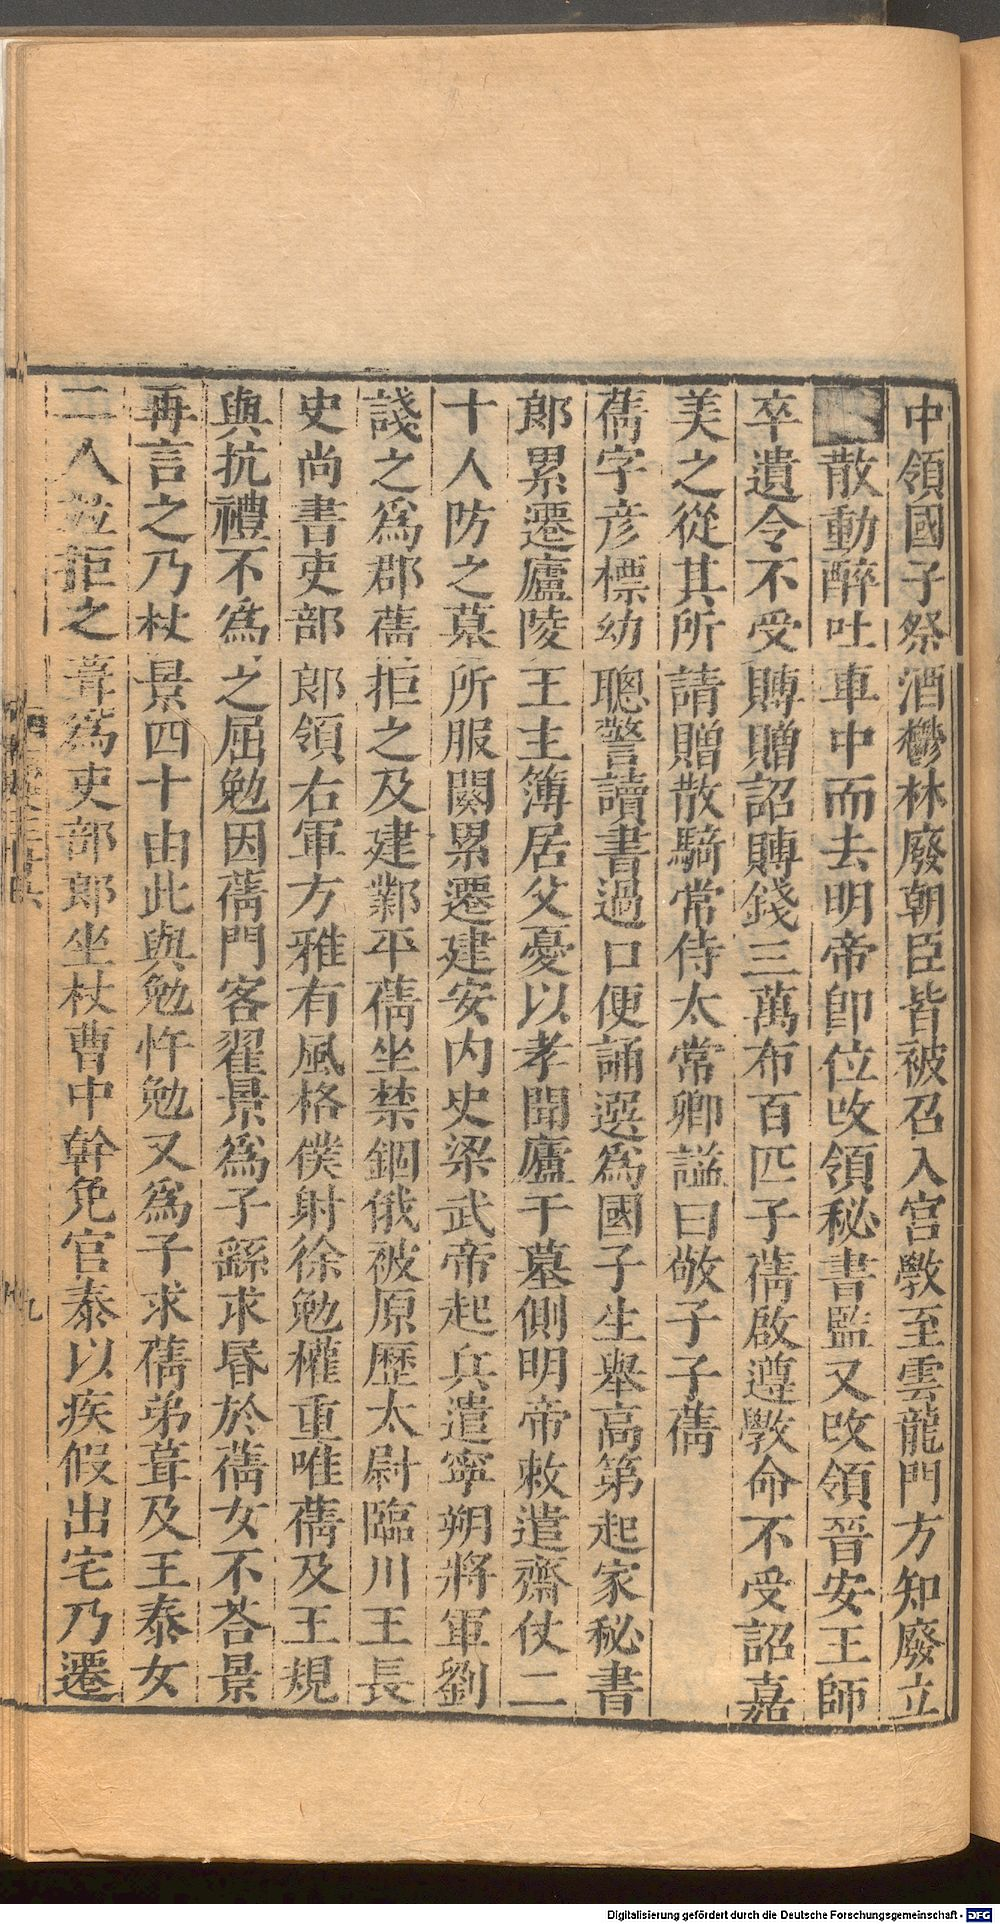 中領國子祭酒鬱林廢朝臣皆被召入宮敩至雲龍門方知廢立
散動醉吐車中而去明帝卽位改領秘書監又改領晉安王師
卒遺令不受賻贈詔賻錢三萬布百匹子蒨啟遵敩命不受詔嘉
美之從其所請贈散騎常侍太常卿謚曰敬子子蒨
蒨字彦標幼聰警讀書過口便誦選爲國子生舉高第起家秘書
郞累遷廬陵王主簿居父憂以孝聞廬于墓側明帝敕遣齋仗二
十人防之墓所服闋累遷建安内史梁武帝起兵遣寧朔將軍劉
諓之爲郡蒨拒之及建鄴平蒨坐禁錮俄被原歷太尉臨川王長
史尚書吏部郞領右軍方雅有風格僕射徐勉權重唯蒨及王規
與抗禮不爲之屈勉因蒨門客翟景爲子繇求昬於蒨女不荅景
再言之乃杖景四十由此與勉忤勉又爲子求蒨弟葺及王泰女
二人並拒之葺爲吏部郎坐杖曹中幹免官泰以疾假出宅乃遷
九
Digitalisierung gefördert durch die Deutsche Forschungsgemeinschaft - DFG